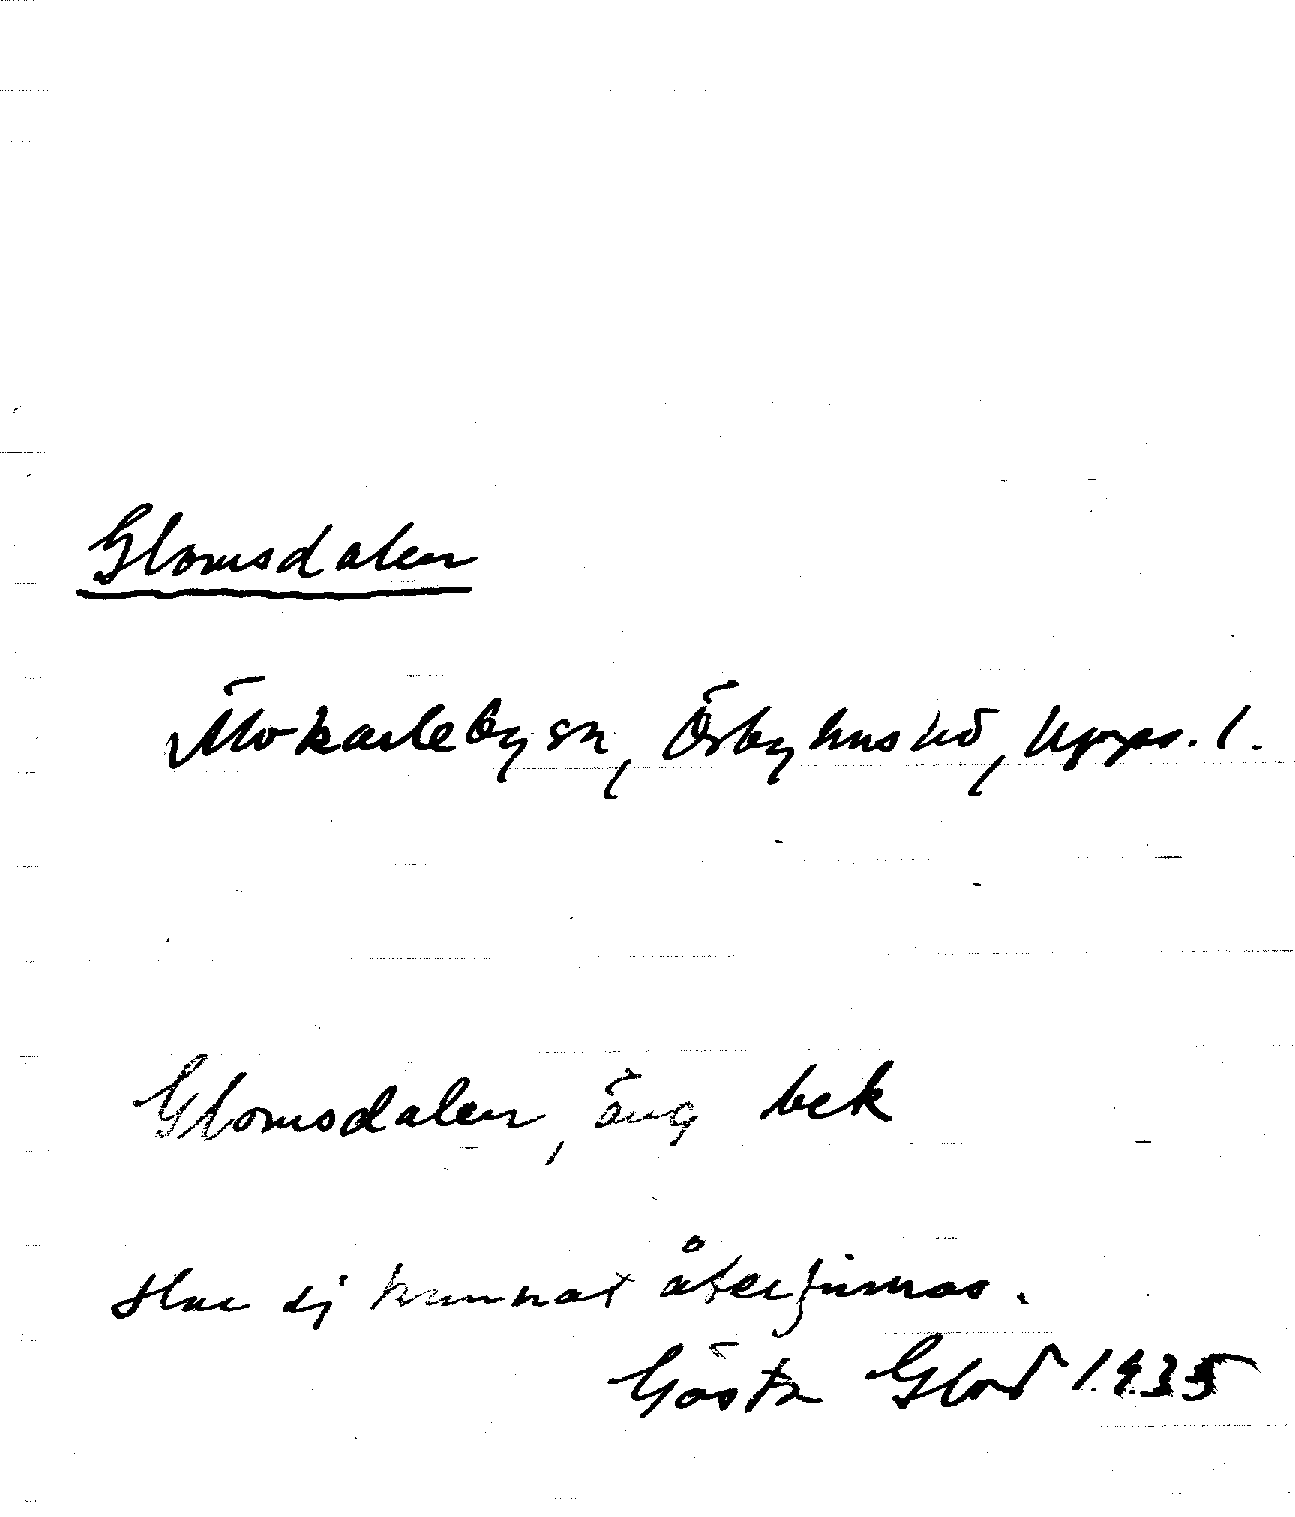 Glomsdalen
Älvkarleby sn, Örbyhus hd, Upps. l.
Glomsdalen, äng bek
Har ej kunnat återfinnas.
Gösta 1935